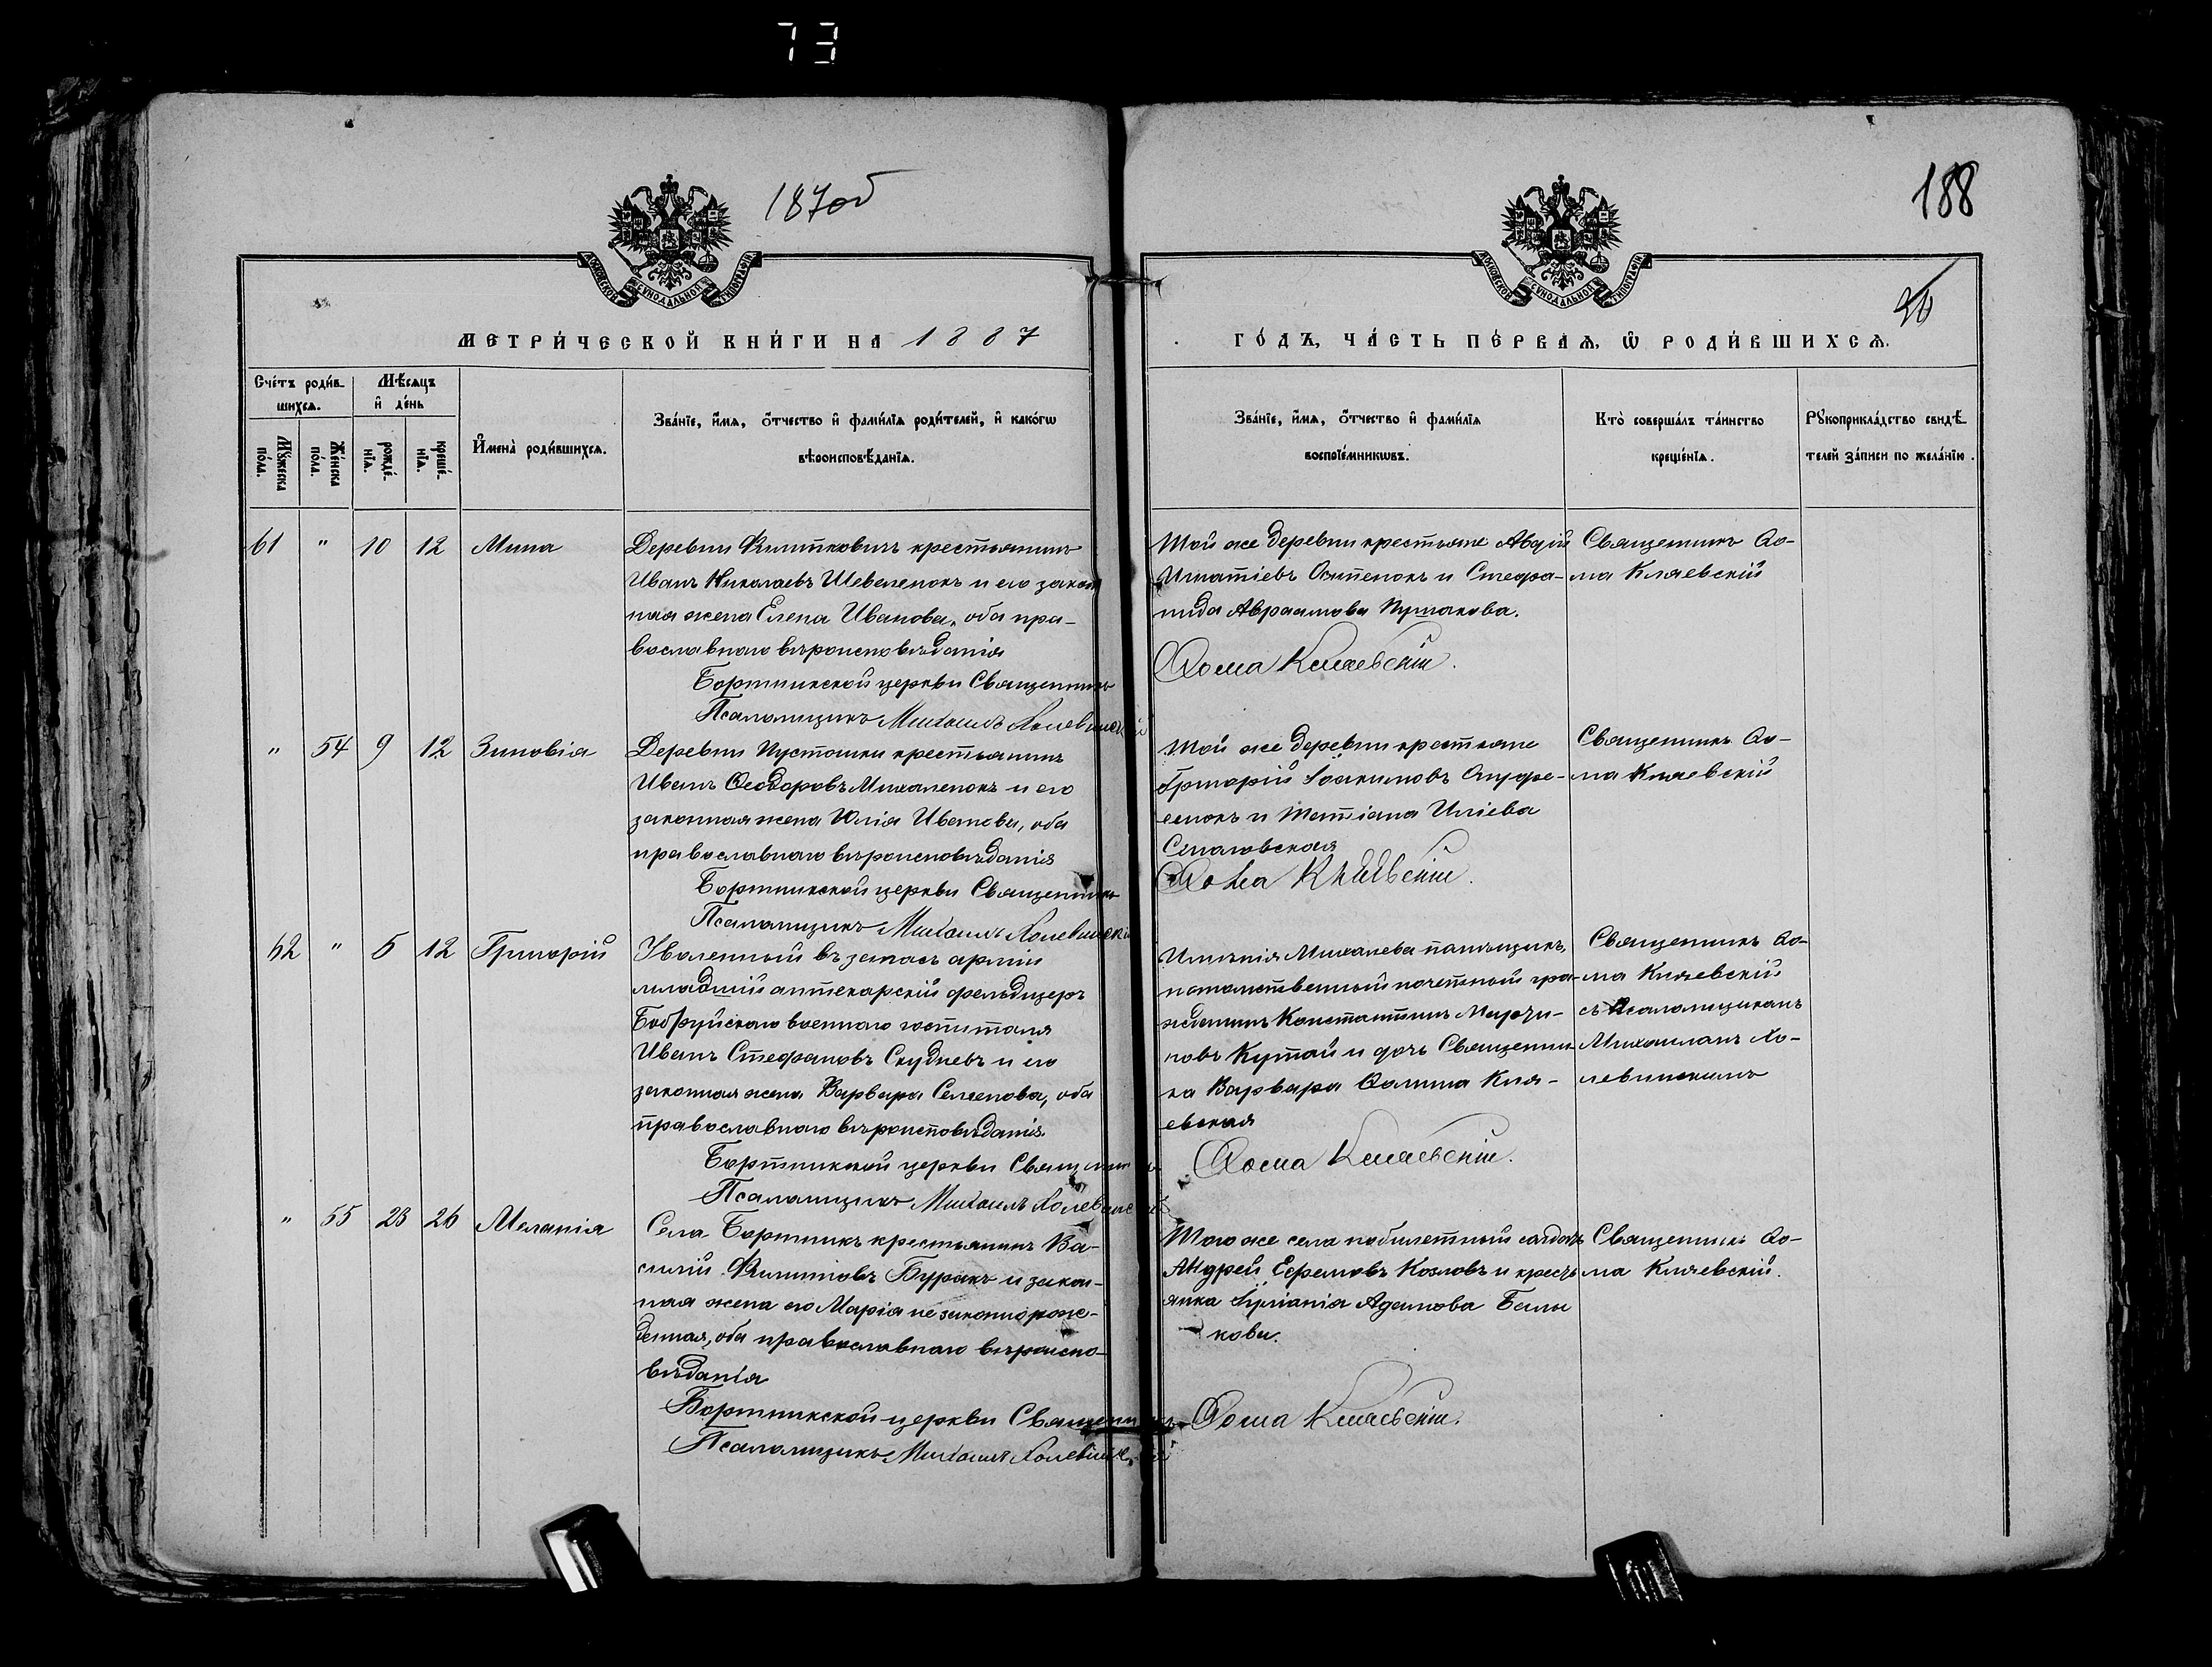 73
187об
188
20
МОСКОВСКОЙ СѴНОДАЛЬНОЙ ТИПОГРАФІИ
МОСКОВСКОЙ СѴНОДАЛЬНОЙ ТИПОГРАФІИ
МЕТРИ́ЧЕСКОЙ КНИ́ГИ НА 1887
ГО́ДЪ, ЧА́СТЬ ПЕ́РВАѦ, Ѡ РОДИ́ВШИХСѦ.
Сче́тъ роди́в-
шихсѧ.
Мѣ́сѧцъ
и҆ де́нь
Мꙋ́жеска по́ла.
Же́нска по́ла.
рожде́-нїѧ.
креще́-нїѧ.
И҆мена̀ роди́вшихсѧ.
Зва́нїе, и҆́мѧ, ѻ҆́тчество и҆ фами́лїѧ роди́телей, и҆ како́гѡ
вѣроисповѣ́данїѧ.
Зва́нїе, и҆́мѧ, ѻ҆́тчество и҆ фами́лїѧ
воспрїе́мникѡвъ.
Кто̀ соверша́лъ та́инство
креще́нїѧ.
Рꙋкоприкла́дство свидѣ́-
телей за́писи по жела́нїю.
61 " 10 12 Мина
Деревни Филипковичъ крестьянинъ
Иванъ Николаевъ Шевеленокъ и его закон
ная жена Елена Иванова, оба пра-
вославнаго вѣроисповѣданія
Бортникской церкви Священникъ
Псаломщикъ Михаилъ Холевинскій
Той же деревни крестьяне Авдій
Игнатіевъ Осипенокъ и Стефа-
нида Авраамова
Ѳома Кляевскій.
Священникъ Ѳо-
ма Кляевскій
" 54 9 12 Зиновія
Деревни Пустошки крестьянинъ
Иванъ Ѳеодоровъ Михаленокъ и его
законная жена Юлія Иванова, оба
православнаго вѣроисповѣданія
Бортникской церкви Священникъ
Псаломщикъ Михаилъ Холевинскій
Той же деревни крестьяне
Григорій Іоакимовъ Ануфре-
енокъ и Татіана Иліева
Ѳома Кляевскій.
Священникъ Ѳо-
ма Кляевскій
62 " 5 12 Григорій
Уволенный въ запасъ арміи
младшій аптекарскій фельдшеръ
Бобруйскаго военнаго госпиталя
Иванъ Стефановъ Скудневъ и его
законная жена Варвара Семенова, оба
православнаго вѣроисповѣданія.
Бортникской церкви Священникъ
Псаломщикъ Михаилъ Холевинскій
Имѣнія Михалева
потомственный почетный гра-
жданинъ Константинъ Марти-
новъ Кутай и дочь Священни-
ка Варвара Ѳомина Кля-
евская
Ѳома Кляевскій.
Священникъ Ѳо-
ма Кляевскій
съ Псаломщикомъ
Михаиломъ Хо-
левинскимъ
" 55 23 26 Меланія
Села Бортникъ крестьянинъ Ва-
силій Филиповъ Буракъ и закон-
ная жена его Марія незаконнорож-
денная, оба православнаго вѣроиспо-
вѣданія
Бортникской церкви Священникъ
Псаломщикъ Михаилъ Холевинскій
Того же села побилетный солдатъ
Андрей Ефремовъ Козловъ и кресть
янка Адамова
кова.
Ѳома Кляевскій.
Священникъ Ѳо-
ма Кляевскій.